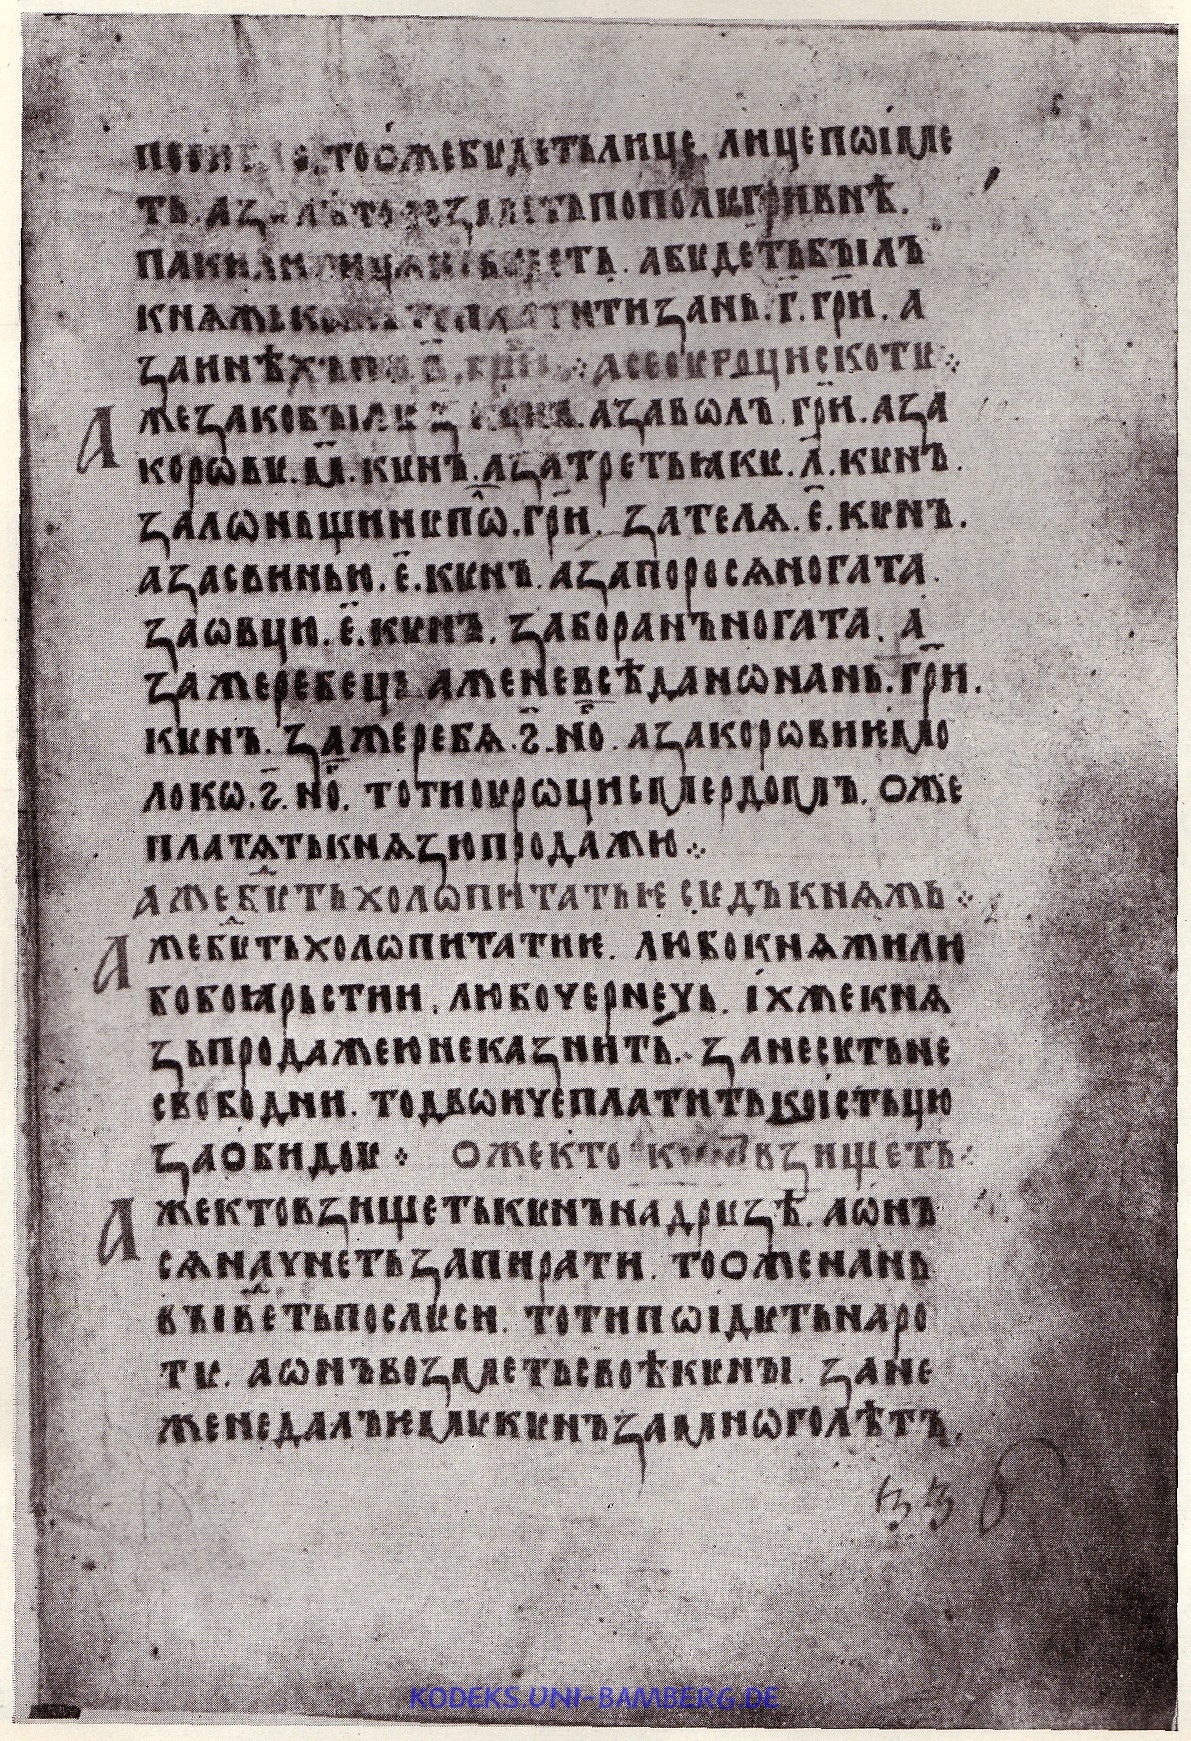 тооже будеть лице. лице поіме
ть. а за лѣто возметь по полу гривнѣ.
паки ли лиця не будеть. а будеть былъ
княжь конь то платити за нь. г҃. гр҃и. а
за инѣхъ по. в҃. гр҃и. ⁘ а се оуроци скоту ⁘
Аже за кобылу з҃. кунъ. а за волъ. гр҃и. а за
корѡву. м҃. кунъ. а за третьяку. л҃. кунъ.
за лѡньщину пѡ̂. гр҃и. за телѧ. е҃. кунъ.
а за свинью. е҃. кунъ. а за поросѧ ногата.
за ѡвцю. е҃. кунъ. за боранъ ногата. а
за жеребець аже не всѣдано на нь. гр҃и.
кунъ. за жеребѧ. ѕ҃. но҃г. а за корѡвиѥ мо
локѡ. ѕ҃. но҃г. то ти оурѡци смердомъ. оже
платѧть кнѧзю продажю ⁘
аже будуть холѡпи татьѥ судъ кнѧжь ⁘
Аже будуть холѡпи татиѥ. любо кнѧжи лю
бо боꙗрьстии. любо чернечь. іхже кнѧ
зь продажею не казнить. зане суть не
свободни. то двѡиче платить ко істьцю
за обиду ⁘ оже кто кунъ взищеть ⁘
Аже кто взищеть кунъ на друзѣ. а ѡнъ
сѧ начнеть запирати. то оже на нь
выведеть послуси. то ти пѡідуть на ро
ту. а ѡнъ возметь своѣ куны. зане
же не далъ ѥму кунъ за мнѡго лѣтъ.
KODEKS.UNI-BAMBERG.DE